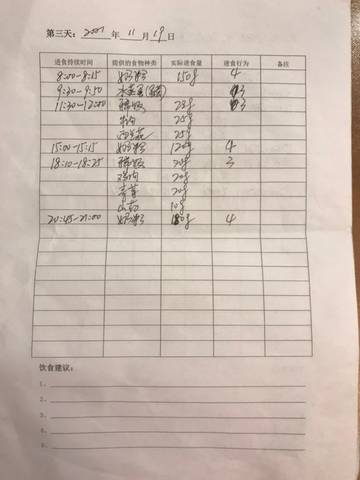 第三天: 2001 年 11 月 19 日
进食持续时间 提供的食物种类 实际进食量 进食行为 备注
8:00-8:15 奶粉 150g 4
9:30-9:50 水蒸蛋 3
11:30-12:00 稀饭 3
牛肉 25g
西兰花 25g
15:00-15:15 奶粉 120g 4
18:10-18:25 稀饭 20g 3
鸡肉 20g
20g
山药 10g
20:45-21:00 奶粉 4
饮食建议:
1、
2、
3、
4、
5、